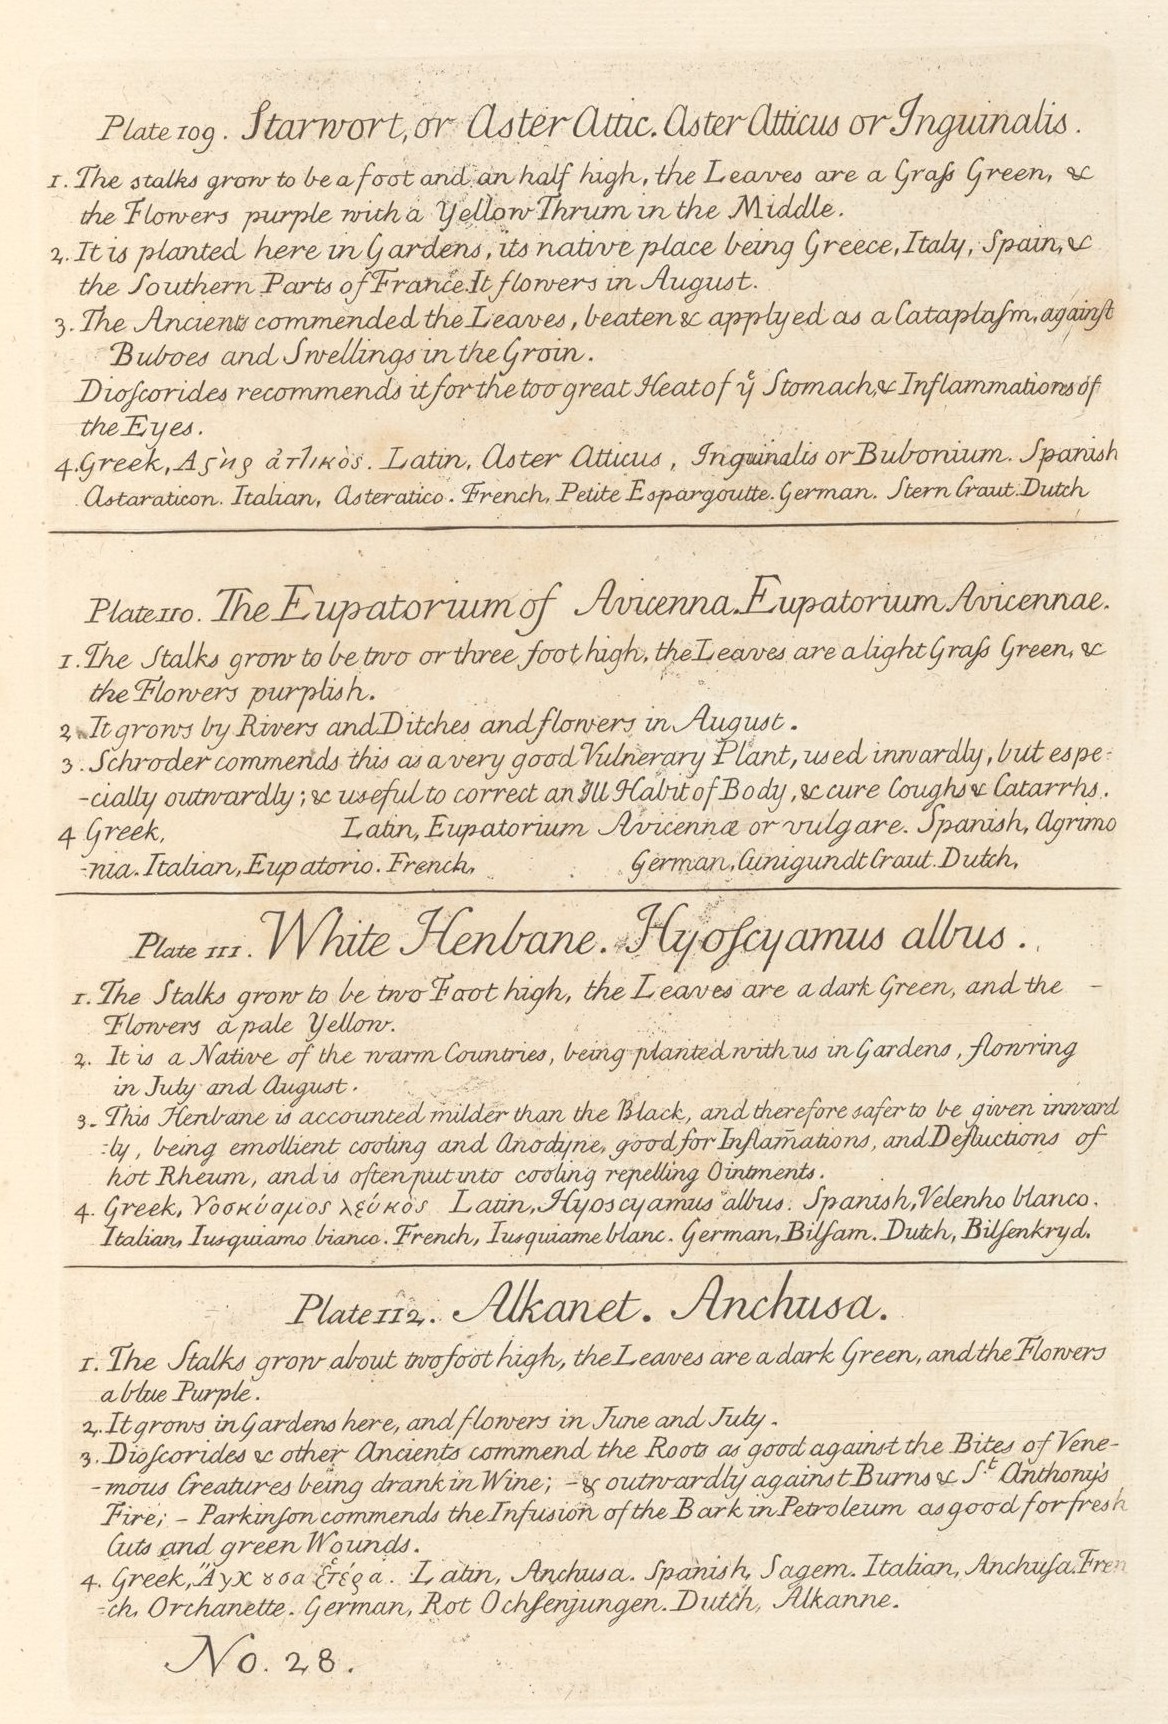 Plate 109. Starwort, or Aster Attic. Aster Atticus or Inguinalis.
1. The stalks grow to be a foot and an half high, the Leaves are a Graſs Green, &
the Flowers purple with a Yellow Thrum in the Middle.
2. It is planted here in Gardens, its native place being Greece, Italy, Spain, &
the Southern Parts of France. It flowers in August.
3. The Ancients commended the Leaves, beaten & applyed as a Cataplaſm, againſt
Buboes and Swellings in the Groin.
Dioſcorides recommends it for the too great Heat of yͤ Stomach, & Inflammations of
the Eyes.
4. Greek, Αϛὴρ ἀτλικὸς. Latin, Aster Atticus, Inguinalis or Bubonium. Spanish
Astaraticon. Italian, Asteratico. French, Petite Espargoutte. German. Stern Craut. Dutch
Plate 110. The Eupatorium of Avicenna. Eupatorium Avicennae.
1. The Stalks grow to be two or three foot high, the Leaves are a light Graſs Green, &
the Flowers purplish.
2. It grows by Rivers and Ditches and flowers in August.
3. Schroder commends this as a very good Vulnerary Plant, used inwardly, but espe-
-cially outwardly; & useful to correct an Ill Habit of Body, & cure Coughs & Catarrhs.
4 Greek, Latin, Eupatorium Avicennæ or vulgare. Spanish, Agrimo
-nia. Italian, Eupatorio. French, German, Cunigundt Craut. Dutch,
Plate 111. White Henbane. Hyoſcyamus albus.
1. The Stalks grow to be two Foot high, the Leaves are a dark Green, and the -
Flowers a pale Yellow.
2. It is a Native of the warm Countries, being planted with us in Gardens, flowring
in July and August.
3. This Henbane is accounted milder than the Black, and therefore safer to be given inward
-ly, being emollient cooling and Anodyne, good for Inflam̄ations, and Defluctions of
hot Rheum, and is often put into cooling repelling Ointments.
4. Greek, Υοσκύαμος λεύκὸς Latin, Hyoscyamus albus. Spanish, Velenho blanco.
Italian, Iusquiamo bianco. French, Iusquiame blanc. German, Bilſam. Dutch, Bilſenkryd.
Plate 112. Alkanet. Anchusa.
1. The Stalks grow about two foot high, the Leaves are a dark Green, and the Flowers
a blue Purple.
2. It grows in Gardens here, and flowers in June and July.
3. Dioſcorides & other Ancients commend the Roots as good against the Bites of Vene-
-mous Creatures being drank in Wine; - & outwardly against Burns & Sᵗ Anthony's
Fire; - Parkinſon commends the Infusion of the Bark in Petroleum as good for fresh
Cuts and green Wounds.
4. Greek, Ἄγχȣσα ἑτέρα. Latin, Anchusa. Spanish, Sagem. Italian, Anchuſa. Fren
-ch, Orchanette. German, Rot Ochſenjungen. Dutch, Alkanne.
No. 28.